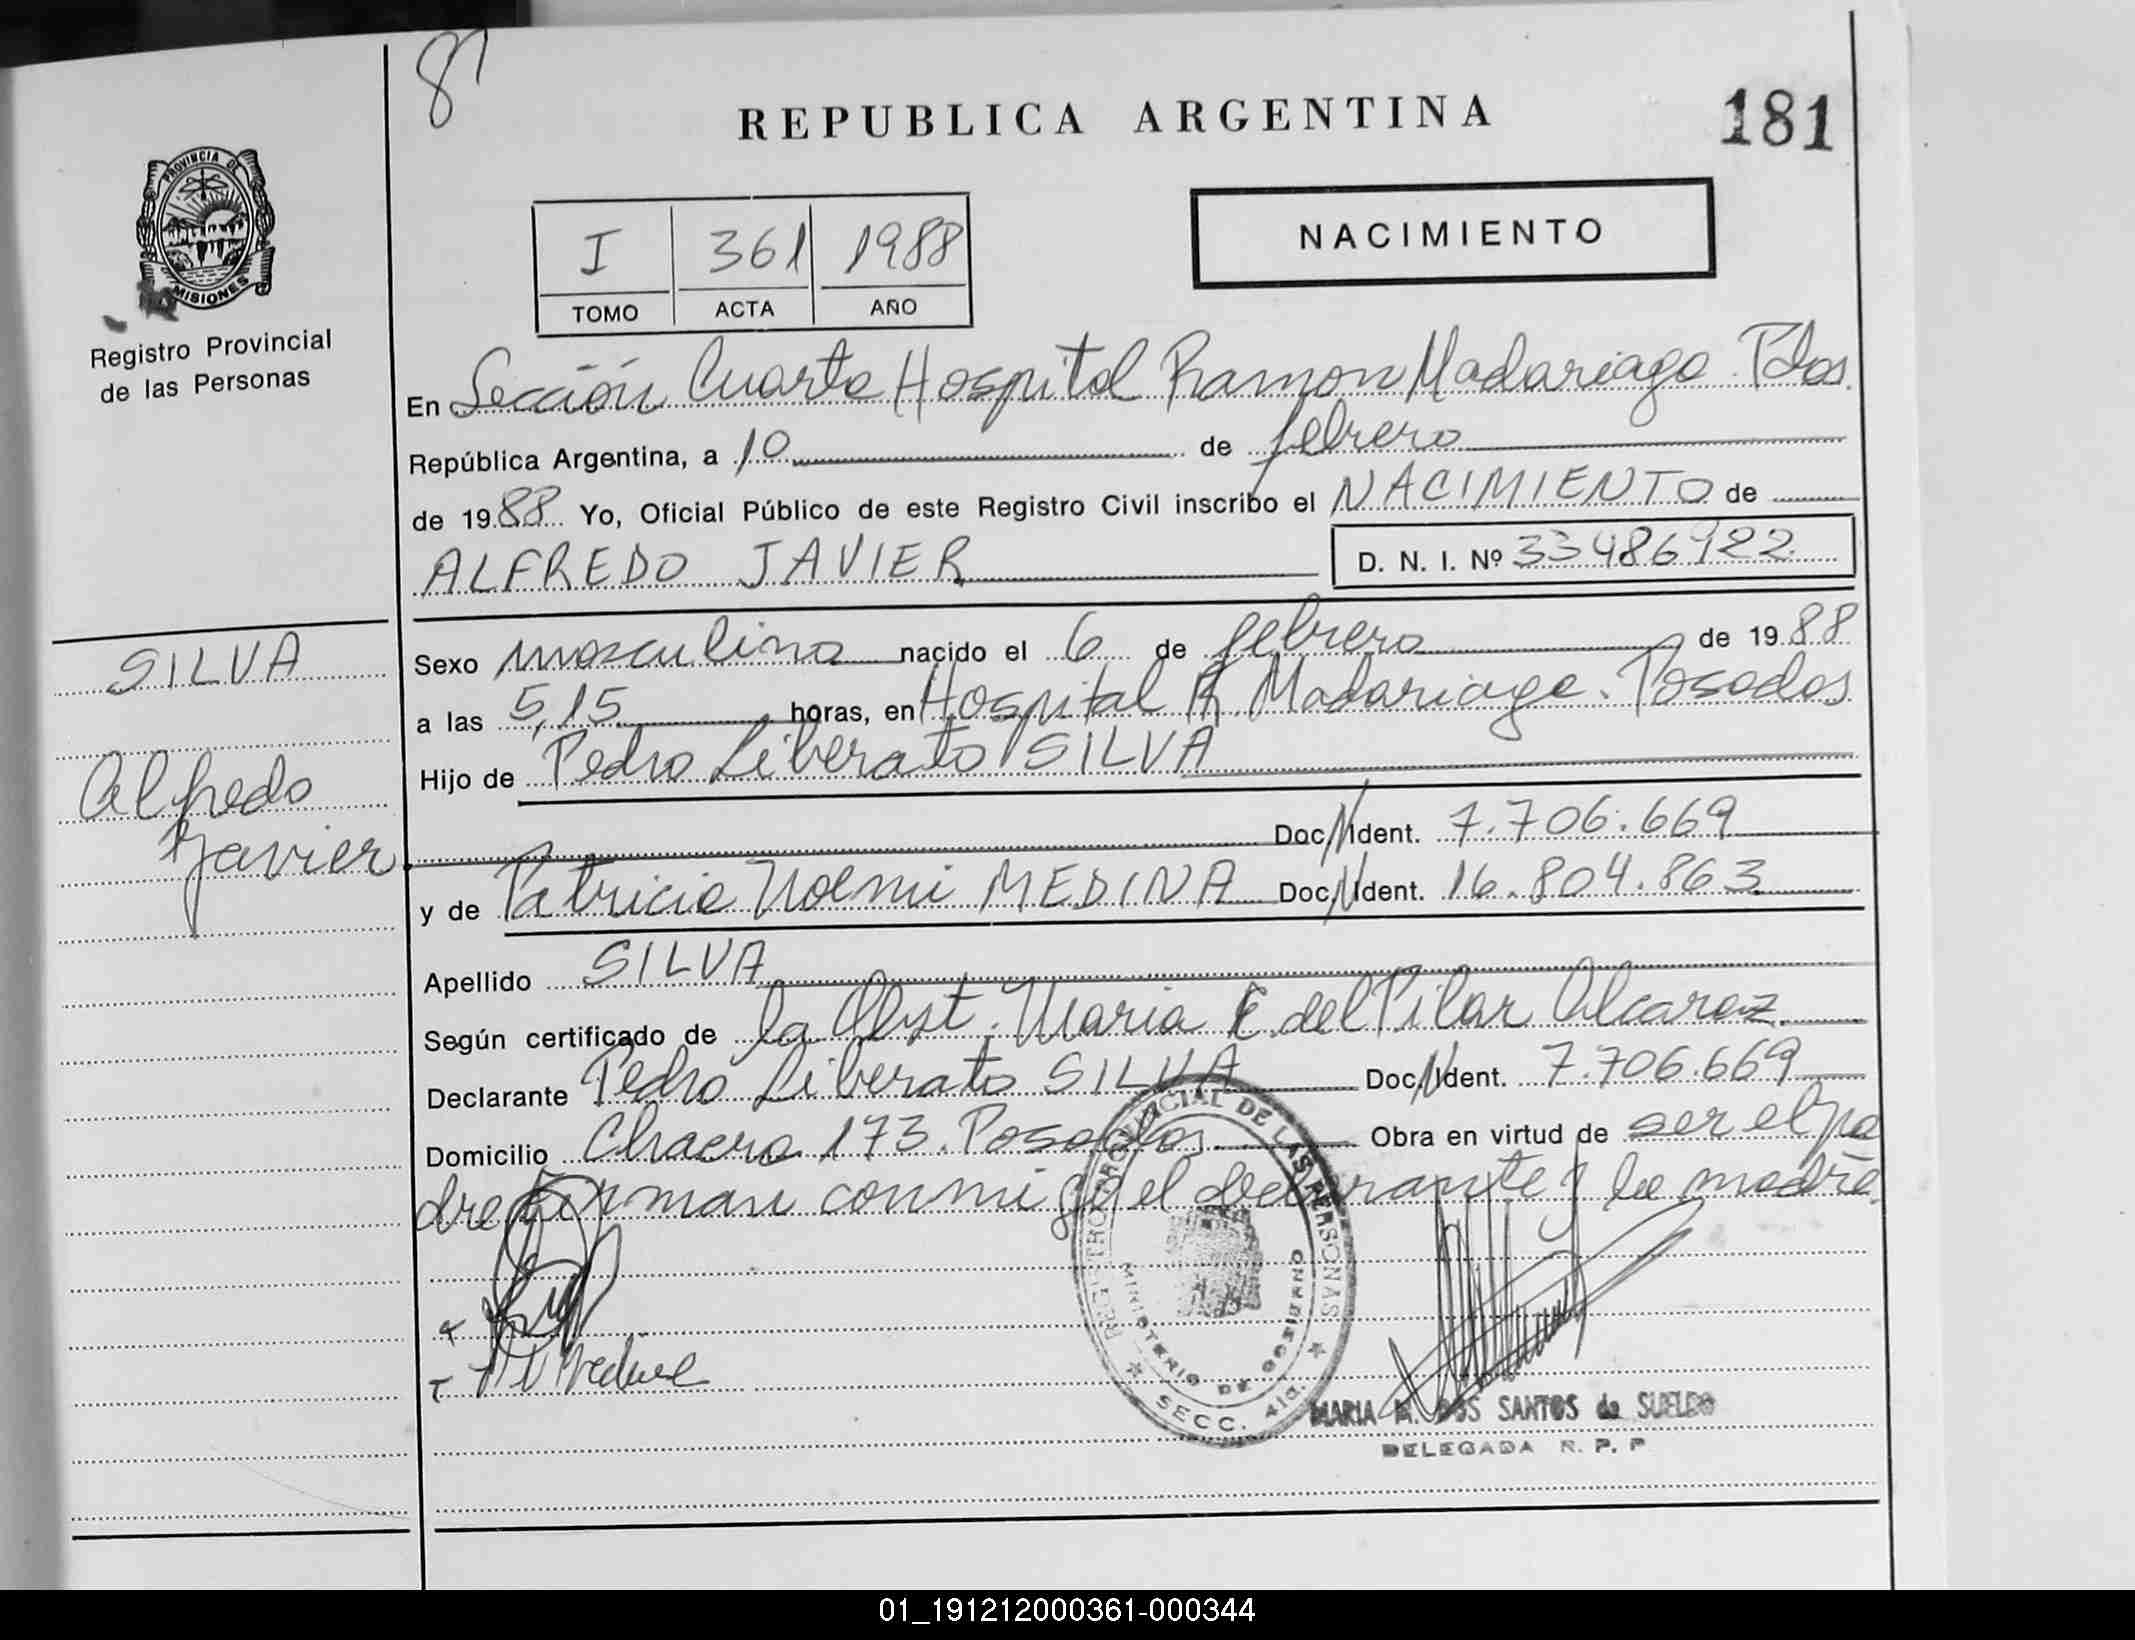 8
REPUBLICA ARGENTINA
181
PROVINCIA DE
MISIONES
Registro Provincial
de las Personas
I 361 1988
TOMO ACTA AÑO
NACIMIENTO
En Sección Cuarta Hospital Ramon Madariaga Pdas.
República Argentina, a 10 de febrero
de 1988 Yo, Oficial Público de este Registro Civil inscribo el NACIMIENTO de
ALFREDO JAVIER D. N. I. Nº 33486922
SILVA
Alfredo
Javier
Sexo masculino nacido el 6 de febrero de 1988
a las 5,15 horas, en Hospital R. Madariaga. Posadas
Hijo de Pedro Liberato SILVA
Doc. Ident. 7.706.669
y de Patricia Noemi MEDINA Doc. Ident. 16.804.863
Apellido SILVA
Según certificado de la Obst. Maria E. del Pilar Alcaraz
Declarante Pedro Liberato SILVA Doc. Ident. 7.706.669
Domicilio Chacra 173. Posadas. Obra en virtud de ser el pa
dre firman conmigo el declarante y la madre
REGISTRO PROVINCIAL DE LAS PERSONAS
MINISTERIO DE GOBIERNO
SECC. 4ta.
MARIA M. DOS SANTOS de SUELDO
DELEGADA R. P. P
01_191212000361-000344